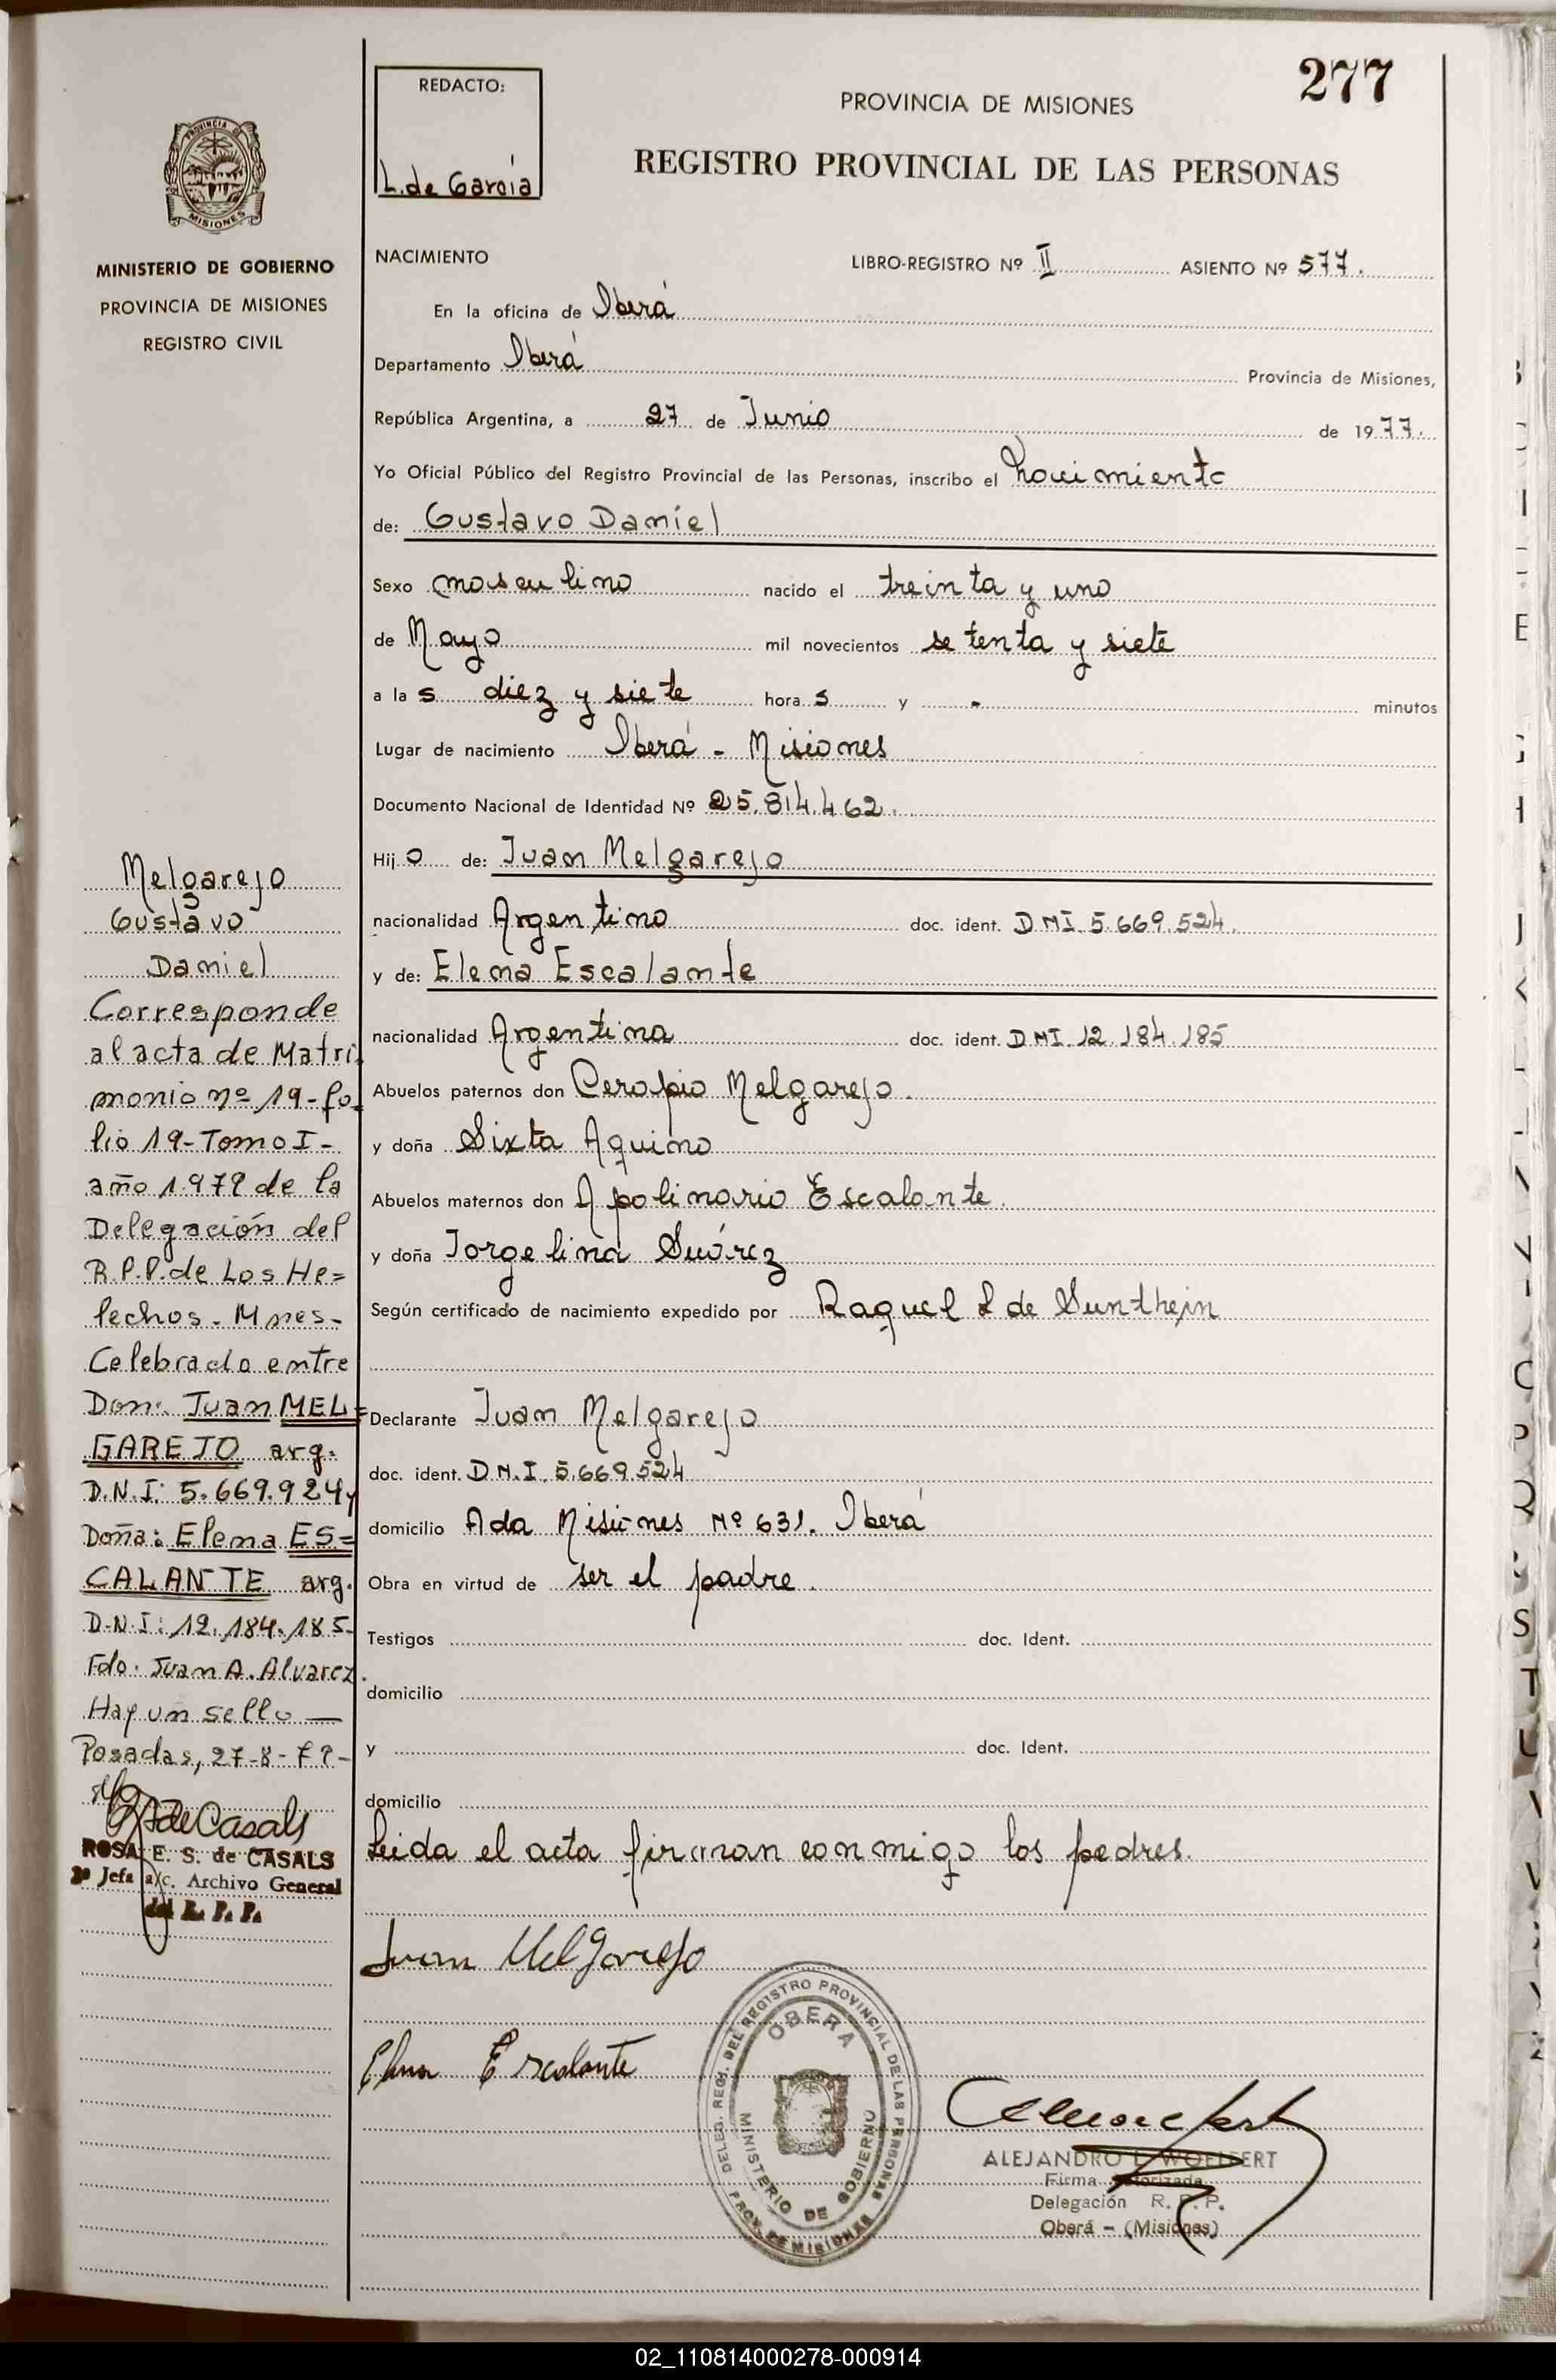 277
REDACTO:
L. de García
PROVINCIA DE MISIONES
REGISTRO PROVINCIAL DE LAS PERSONAS
PROVINCIA DE
MISIONES
MINISTERIO DE GOBIERNO
PROVINCIA DE MISIONES
REGISTRO CIVIL
NACIMIENTO LIBRO-REGISTRO Nº II ASIENTO Nº 577.
En la oficina de Oberá
Departamento Oberá Provincia de Misiones,
República Argentina, a 27 de Junio de 1977.
Yo Oficial Público del Registro Provincial de las Personas, inscribo el Nacimiento
de: Gustavo Daniel
Sexo masculino nacido el treinta y uno
de Mayo mil novecientos setenta y siete
a la s diez y siete hora s y - minutos
Lugar de nacimiento Oberá - Misiones
Documento Nacional de Identidad Nº 25.814.462.
Hij o de: Juan Melgarejo
nacionalidad Argentino doc. ident. DNI 5.669.524.
y de: Elena Escalante
nacionalidad Argentina doc. ident. DNI 12.184.185
Abuelos paternos don Melgarejo.
y doña Sixta Aquino
Abuelos maternos don Apolinario Escalante.
y doña Jorgelina Suárez
Según certificado de nacimiento expedido por Raquel de Sunthein
Declarante Juan Melgarejo
doc. ident. D.N.I. 5.669.524
domicilio Avda Misiones Nº 631. Oberá
Obra en virtud de ser el padre.
Testigos doc. Ident.
domicilio
y doc. Ident.
domicilio
Leida el acta firman conmigo los padres.
Juan Melgarejo
Elena Escalante
DELEG. REG. DEL REGISTRO PROVINCIAL DE LAS PERSONAS
OBERA
MINISTERIO DE GOBIERNO
PROV. DE MISIONES
ALEJANDRO L. WOELFERT
Firma Autorizada
Delegación R. P. P.
Oberá - (Misiones)
Melgarejo
Gustavo
Daniel
Corresponde
al acta de Matri
monio nº 19-fo-
lio 19-Tomo I-
año 1.979 de la
Delegación del
R.P.P. de Los He=
lechos. Mnes-
Celebrado entre
Don: Juan MEL=
GAREJO arg.
D.N.I: 5.669.924 y
Doña: Elena ES=
CALANTE arg.
D.N.I: 12.184.185-
Fdo. Juan A. Alvarez.
Hay un sello —
Posadas, 27-8-79-
de Casals
ROSA E. S. de CASALS
2º Jefa a/c. Archivo General
del R. P. P.
02_110814000278-000914